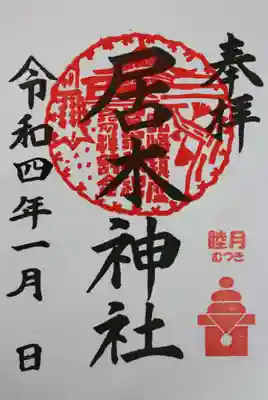 奉拝
居木神社
令和四年一月 日
睦月
むつき